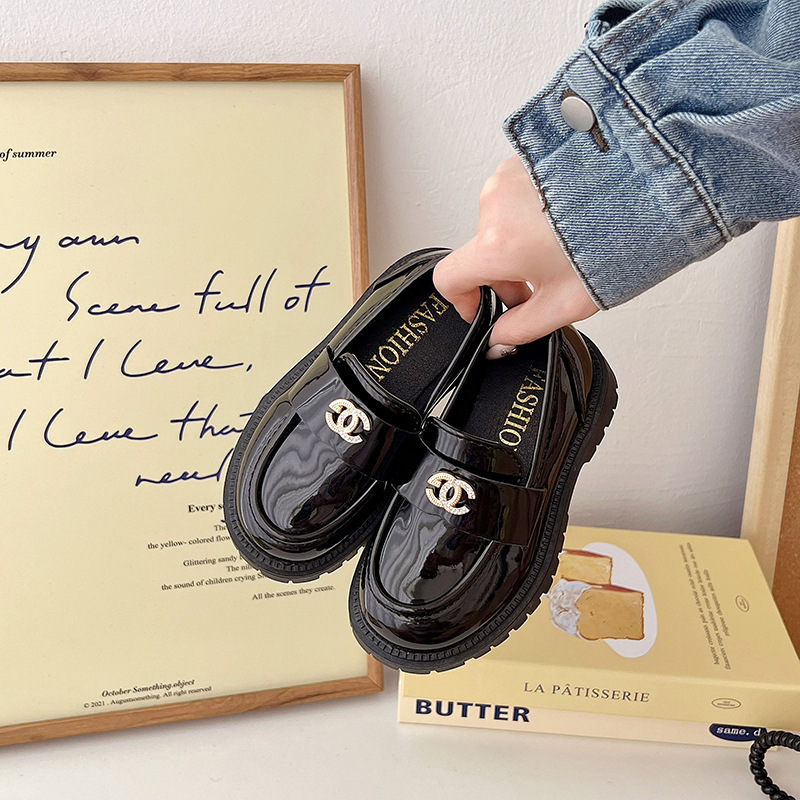 of summer
my own
Scene full of
that I Leave,
I Leave that
need
Every s
The
the yellow- colored flow
Glittering sandy
The nii
the sound of children crying S
All the scenes they create.
October Something.object
© 2021 . Augustsomething. All right reserved
FASHION
FASHIO
LA PÂTISSERIE
BUTTER
same. d